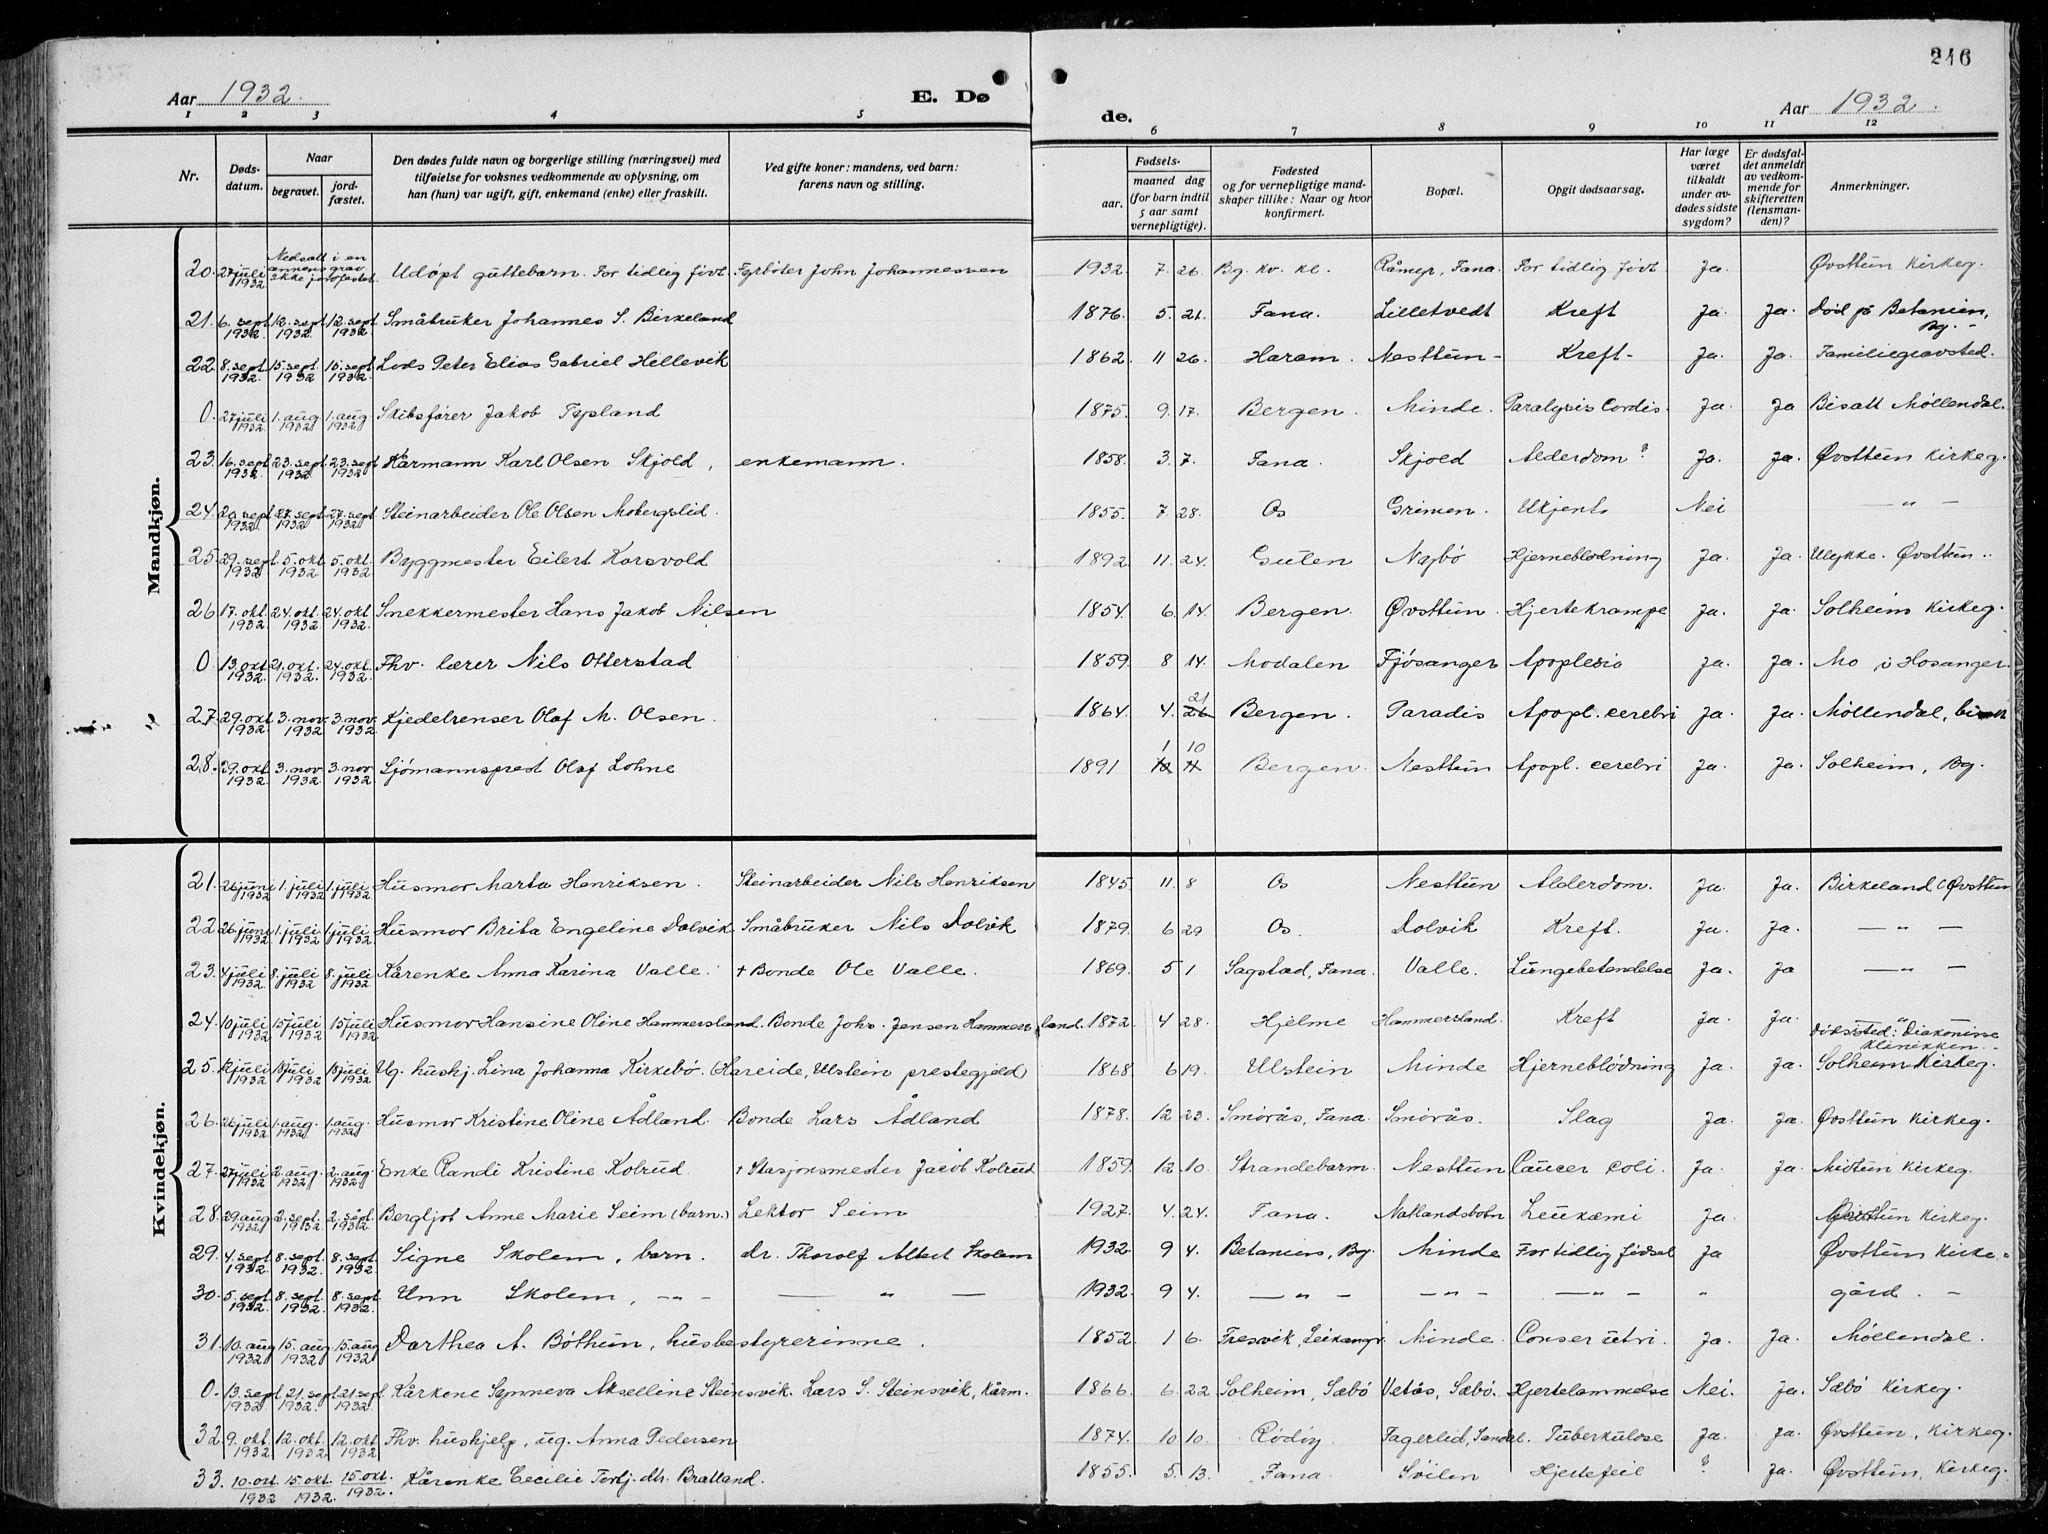 246
Aar 1932. E. Døde. Aar 1932.
1 2 3 4 5 6 7 8 9 10 11 12
Nr. Døds-datum. Naar begravet. jord-fæstet. Den dødes fulde navn og borgerlige stilling (næringsvei) med tilføielse for voksnes vedkommende av oplysning, om han (hun) var ugift, gift, enkemand (enke) eller fraskilt. Ved gifte koner: mandens, ved barn: farens navn og stilling. Fødsels- aar. maaned dag (for barn indtil 5 aar samt vernepligtige). Fødested og for vernepligtige mand-skaper tillike: Naar og hvor konfirmert. Bopæl. Opgit dødsaarsag. Har læge været tilkaldt under av-dødes sidste sygdom? Er dødsfal-det anmeldt av vedkom-mende for skifteretten (lensman-den)? Anmerkninger.
Mandkjøn.
20. 27 juli 1932 Nedsatt i en annens grav ikke jordfestet. Udøpt guttebarn. For tidlig født Fyrbøter John Johannessen 1932. 7. 26. Bg. kv. kl. Råmyr, Fana. For tidlig født Ja. Øvsttun Kirkeg.
21. 6. sept 1932 12. sept 1932 12. sept 1932 Småbruker Johannes S. Birkeland 1876. 5. 21. Fana. Lilletvedt Kreft Ja. Ja. Død på Betanien, Bg. -
22. 8. sept 1932. 15. sept. 1932 15. sept 1932. Lods Peter Elias Gabriel Hellevik 1862. 11 26. Haram. Nesttun - Kreft - Ja. Ja. Familiegravsted.
0. 27 juli 1932 1. aug 1932 1. aug 1932 Skibsfører Jakob Tysland 1875. 9. 17. Bergen. Minde. Paralysis Cordis. Ja. Ja Bisatt Møllendal.
23. 16. sept 1932. 23. sept. 1932 23. sept 1932 Kårmann Karl Olsen Skjold, enkemann. 1858. 3. 7. Fana. Skjold Alderdom? Ja. Ja. Øvsttun Kirkeg.
24. 20. sept 1932 27. sept 1932 27. sept 1932 Steinarbeider Ole Olsen Mobergslid. 1855. 7 28. Os Grimen. Ukjent. Nei — " —
25. 29. sept. 1932 5. okt 1932 5. okt 1932. Byggmester Eilert Korsvold 1892. 11. 24. Gulen Nøjbø Hjerneblødning Ja. Ja. Ulykke. Øvsttun..
26 17. okt 1932. 24. okt. 1932 24. okt 1932. Snekkermester Hans Jakob Nilsen 1854. 6. 14. Bergen. Øvsttun. Hjertekrampe Ja. Ja. Solheim Kirkeg.
0 13. okt 1932. 21. okt. 1932. 24. okt. 1932 Fhv. lærer Nils Otterstad 1859. 8 14. Modalen Fjøsanger Apoplexia Ja. Ja. Mo i Hosanger.
27. 29. okt 1932. 3. nov. 1932 3. nov. 1932. Kjedelrenser Olaf M. Olsen. 1864. 4. 21 26 Bergen. Paradis Apopl. cerebri Ja. Ja. Møllendal, bisatt
28. 29. okt 1932. 3. nov 1932 3. nov 1932. Sjømannsprest Olaf Lohne 1891 1 10 Bergen. Nesttun Apopl. cerebri Ja. Ja. Solheim, Bg.
Kvindekjøn.
21. 26 juni 1932 1. juli 1932 1. juli 1932 Husmor Marta Henriksen. Steinarbeider Nils Henriksen 1845. 11. 8 Os Nesttun Alderdom. Ja. Ja. Birkeland (Øvsttun
22. 26 juni 1932 1. juli 1932 1. juli 1932 Husmor Brita Engeline Dolvik Småbruker Nils Dolvik 1879. 6 29 Os. Dolvik Kreft. Ja. Ja. — " —
23. 4 juli 1932 8. juli 1932 8. juli 1932 Kårenke Anna Karina Valle. + Bonde Ole Valle. 1869. 5 1 Sagstad, Fana. Valle. Lungebetendelse Ja. Ja — " —
24. 10 juli 1932 15 juli 1932 15 juli 1932 Husmor Hansine Oline Hammersland. Bonde Johs. Jensen Hammersland. 1872. 4 28. Hjelme Hammersland. Kreft Ja. Ja. " Dødssted: Diakonisse klinikken..
25. 12 juli 1932 18 juli 1932 18 juli 1932 Ug. hushj. Lina Johanna Kirkebø. (Hareide, Ulstein prestegjeld) 1868 6 19. Ulstein Minde Hjerneblødning Ja. Ja. Solheim Kirkeg.
26. 26 juli 1932 1. aug. 1932 1. aug. 1932 Husmor Kristine Oline Ådland. Bonde Lars Ådland 1878. 12 23. Smørås, Fana. Smørås. Slag Ja. Ja. Øvsttun Kirkeg.
27. 27 juli 1932 2. aug. 1932 2. aug. 1932 Enke Randi Kristine Kolrud. + Stasjonsmester Jacob Kolrud 1859. 12. 10. Strandebarm. Nesttun Cancer coli. Ja. Ja. Midtun Kirkeg.
28. 29 aug 1932 2. sept. 1932 2. sept. 1932. Bergljot Anne Marie Seim (barn.) Lektor Seim 1927. 4. 24. Fana. Natlandsbotn Leukæmi Ja. Øvsttun Kirkeg.
29. 4. sept 1932. 8. sept. 1932. 8. sept. 1932. Signe Skolem, barn. dr. Thoralf Albert Skolem 1932 9 4. Betanien, Bg. Minde For tidlig fødsel Ja Øvsttun Kirke-
30. 5. sept 1932 8. sept. 1932. 8. sept 1932. Unn Skolem, — " — — " — 1932. 9 4. — " — — " — — " — " gård. -
31. 10. aug 1932 15. aug 1932 15. aug 1932 Dorthea A. Bøthun, husbestyrerinne. 1852. 1 6. Fresvik, Leikanger Minde. Cancer utri. Ja. Ja. Møllendal.
0. 13. sept 1932 21. sept 1932. 21. sept 1932. Kårkone Synneva Akselline Steinsvik. Lars S. Steinsvik, Kårm. 1866. 6. 22 Solheim, Sæbø Vetås, Sæbø. Hjertelammelse Nei. Ja. Sæbø Kirkeg.
32. 9. okt 1932 12. okt. 1932 12. okt 1932 Fhv. hushjelp, ug. Anna Pedersen 1874. 10 10. Rødøy Fagerlid, Sandal. Tuberkulose Ja. Ja. Øvsttun, Kirkeg.
33. 10. okt 1932 15. okt. 1932. 15. okt. 1932. Kårenke Cecilie Torbj. dtr. Bratland. 1855. 5. 13. Fana. Søilen Hjertefeil ? Ja. Øvsttun, Kirkeg.